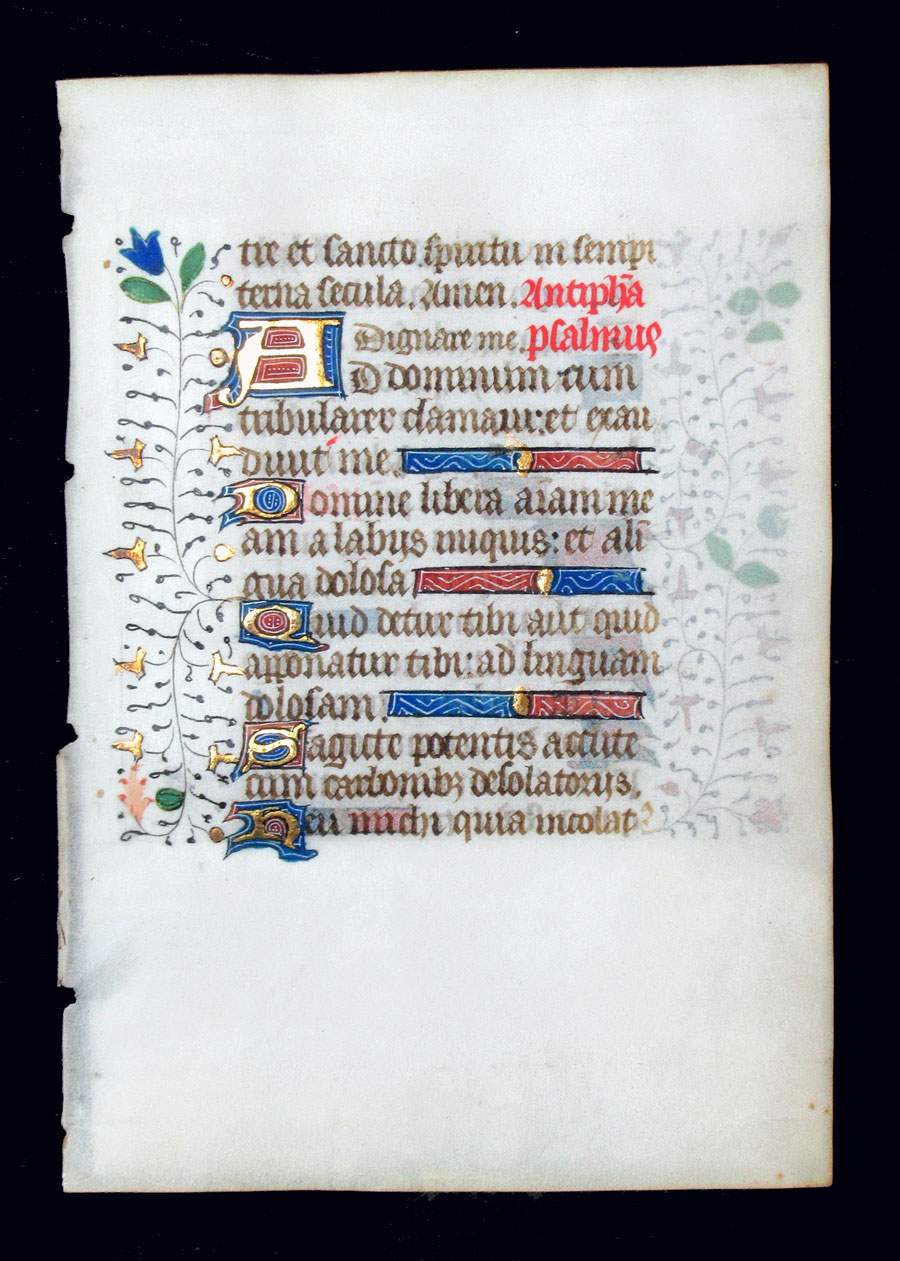 tre et sancto spiritu in sempi
terna secula. Amen. Antiphā
Dignare me. psalmus
AD dominum cum
tribularer clamaui: et exau
diuit me.
Domine libera aīam me
am a labijs iniquis: et a liī
gua dolosa
Quid detur tibi aut quid
apponatur tibi: ad linguam
dolosam.
Sagitte potentis accute
cum carbonibꝫ desolatorijs.
Heu michi quia incolatꝰ